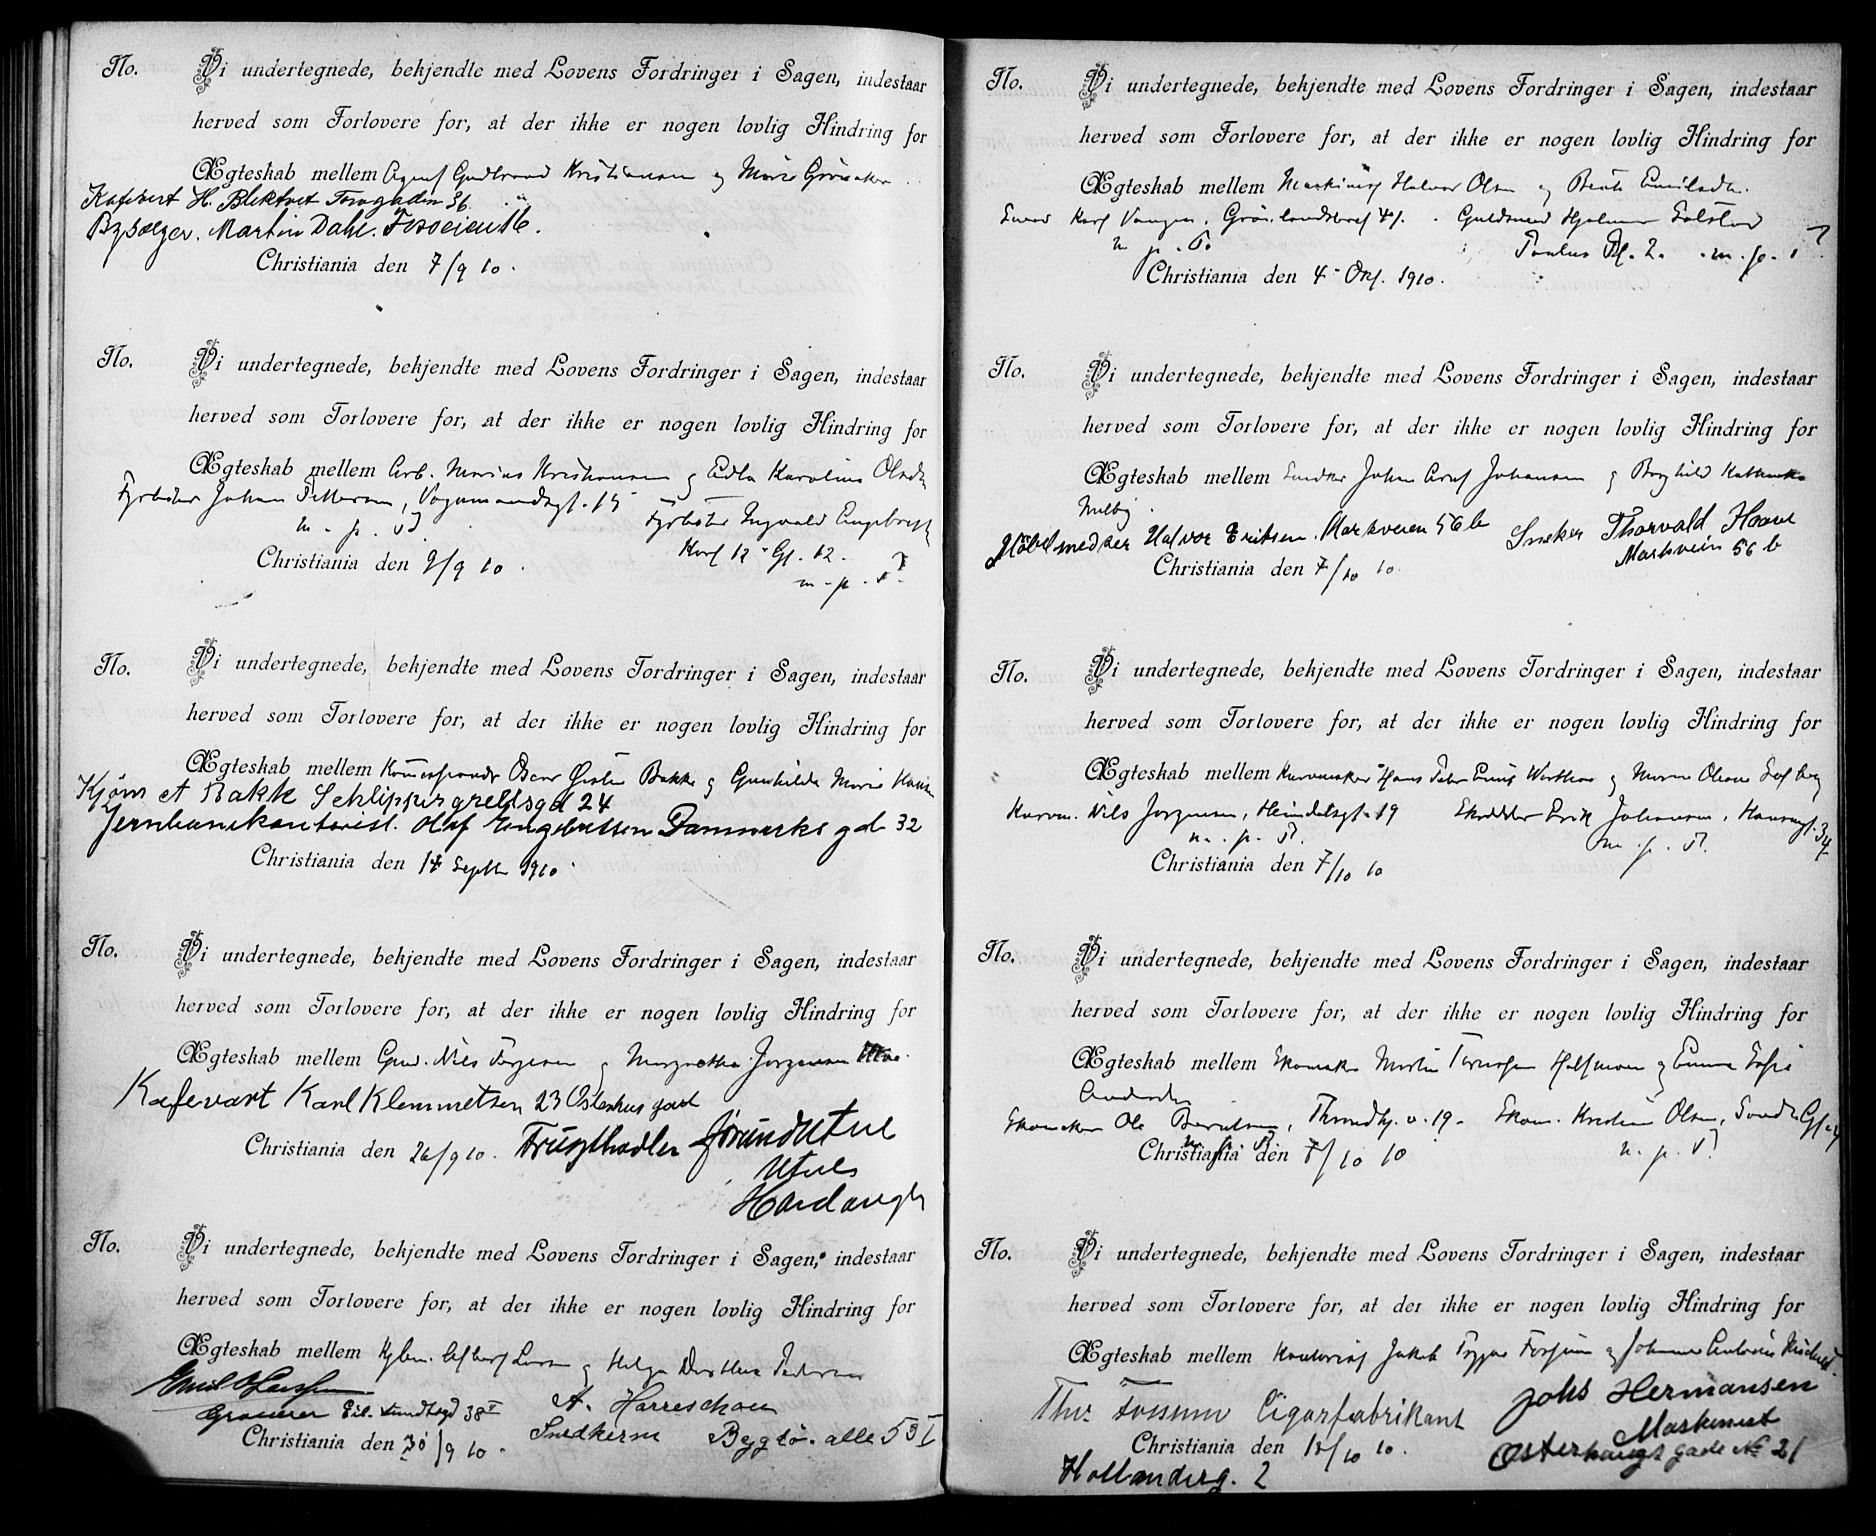 No. Vi undertegnede, bekjendte med Lovens Fordringer i Sagen, indestaar
herved som Forlovere for, at der ikke er nogen lovlig Hindring for
Ægteskab mellem Agent Gudbrand Kristiansen og Marie
Kafevert H. Blektvet Torvgaden 36.
Bysælger. Martin Dahl. Fossveien 16.
Christiania den 7/9 10.
No. Vi undertegnede, bekjendte med Lovens Fordringer i Sagen, indestaar
herved som Forlovere for, at der ikke er nogen lovlig Hindring for
Ægteskab mellem Arb. Marius Kristiansen og Edla Karoline Olsdt
Fyrbøter Johan Pettersen, Vogmandsgt. 15
m. p. P. Fyrbøter Ingvald Engebregt
Karl 12 Gt. 12.
Christiania den 9/9 10.
m. p. P.
No. Vi undertegnede, bekjendte med Lovens Fordringer i Sagen, indestaar
herved som Forlovere for, at der ikke er nogen lovlig Hindring for
Ægteskab mellem Oscar Bakke og Gunhilda Marie
Kjøm A Bakk Schlippergrellsgd 24
Jernbanekontorist. Olaf Engebretsen Danmarks gd 32
Christiania den 14 Septbr 1910.
No. Vi undertegnede, bekjendte med Lovens Fordringer i Sagen, indestaar
herved som Forlovere for, at der ikke er nogen lovlig Hindring for
Ægteskab mellem Nils og Margrethe Jørgensen
Kafevært Karl Klemmetsen 23 Osterhus gard
Christiania den 26/9 10. Frugthadler Jørund Utne
Utnes
Hardanger
No. Vi undertegnede, bekjendte med Lovens Fordringer i Sagen, indestaar
herved som Forlovere for, at der ikke er nogen lovlig Hindring for
Ægteskab mellem Larsen og Helga Dorthea Pedersen
Emil
Graverer Eil. Sundtsgd 38 I A. Harreschou
Christiania den 30/9 10. Snedkerm Bygdø. alle 53 I
No. Vi undertegnede, bekjendte med Lovens Fordringer i Sagen, indestaar
herved som Forlovere for, at der ikke er nogen lovlig Hindring for
Ægteskab mellem Maskinist Halvor Olsen og Beate Emilsdtr.
Karl Vangen, Grønlandsleret 41. Guldsmed Hjalmar Solstad
m. p. P. Paulus Pl. 2. m. p. P
Christiania den 4 Okt. 1910.
No. Vi undertegnede, bekjendte med Lovens Fordringer i Sagen, indestaar
herved som Forlovere for, at der ikke er nogen lovlig Hindring for
Ægteskab mellem Snedker Johan Johansen og Borghild Kathinka
Møbelsnedker Halvor Eriksen. Markveien 56 b Sneker Thorvald
Markvein 56 b
Christiania den 7/10 10.
No. Vi undertegnede, bekjendte med Lovens Fordringer i Sagen, indestaar
herved som Forlovere for, at der ikke er nogen lovlig Hindring for
Ægteskab mellem Kurvmaker Hans Peter og Marie Olsen Solberg
Kurvm. Nils Jørgensen, Heimdalsgt. 19 Skrædder Erik Johansen, Hausmgt. 34
m. p. P. m. p. P.
Christiania den 7/10 10
No. Vi undertegnede, bekjendte med Lovens Fordringer i Sagen, indestaar
herved som Forlovere for, at der ikke er nogen lovlig Hindring for
Ægteskab mellem Skomaker Martin Halfmoen og Emma Sofie
Andersdtr
Skomaker Ole Berntsen, Throndhj. v. 19. Skom. Kristian Olsen,
m. p. P. m. p. P.
Christiania den 7/10 10
No. Vi undertegnede, bekjendte med Lovens Fordringer i Sagen, indestaar
herved som Forlovere for, at der ikke er nogen lovlig Hindring for
Ægteskab mellem Kontorist Jakob Trygve Forsum og Johanne
Thv. Fossum Cigarfabrikant Johs Hermansen
Maskinist
Christiania den 12/10 10. Osterhaugs gade No 21
Hollanderg. 2